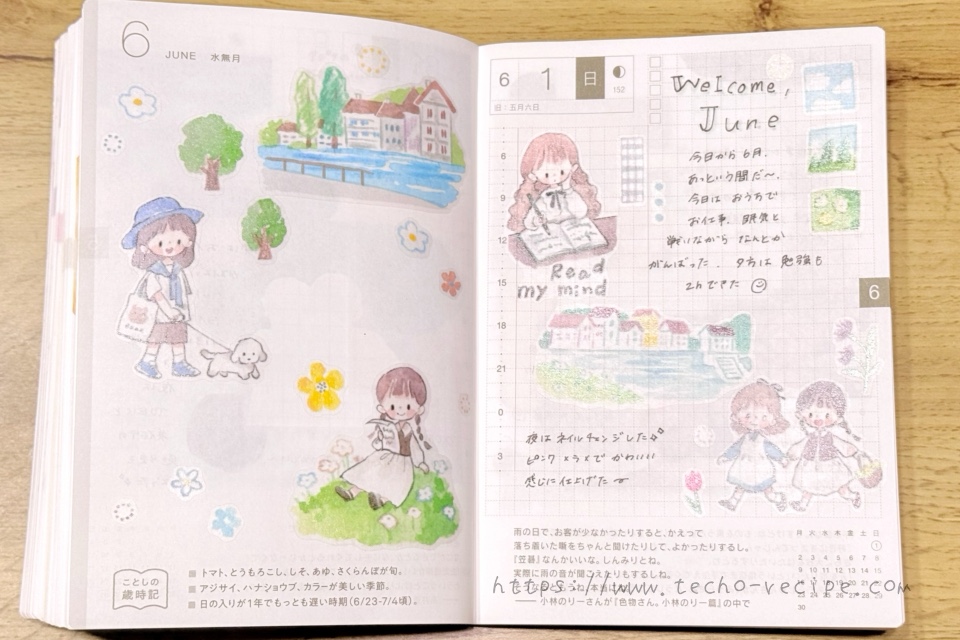 6
JUNE 水無月
ことしの
歳時記
■ トマト、とうもろこし、しそ、あゆ、さくらんぼが旬。
■ アジサイ、ハナショウブ、カラーが美しい季節。
■ 日の入りが1年でもっとも遅い時期(6/23-7/4頃)。
6 1 日
152
旧:五月六日
Welcome,
June
今日から6月.
あっという間だ〜.
今日は おうちで
お仕事. 眠気と
戦いながら なんとか
がんばった. 夕方は 勉強も
2hできた
6
9
12
15
18
21
0
3
Read
my mind
6
夜は ネイルチェンジした
ピンク×ラメで かわいい
感じに仕上げた
雨の日で、お客が少なかったりすると、かえって
落ち着いた噺をちゃんと聞けたりして、よかったりするし。
『笠碁』なんかいいな。しんみりとね。
実際に雨の音が聞こえたりもするしね。
―― 小林のりーさんが『色物さん。小林のりー篇』の中で
月 火 水 木 金 土 日
1
2 3 4 5 6 7 8
9 10 11 12 13 14 15
30
https://www.techo-recipe.com